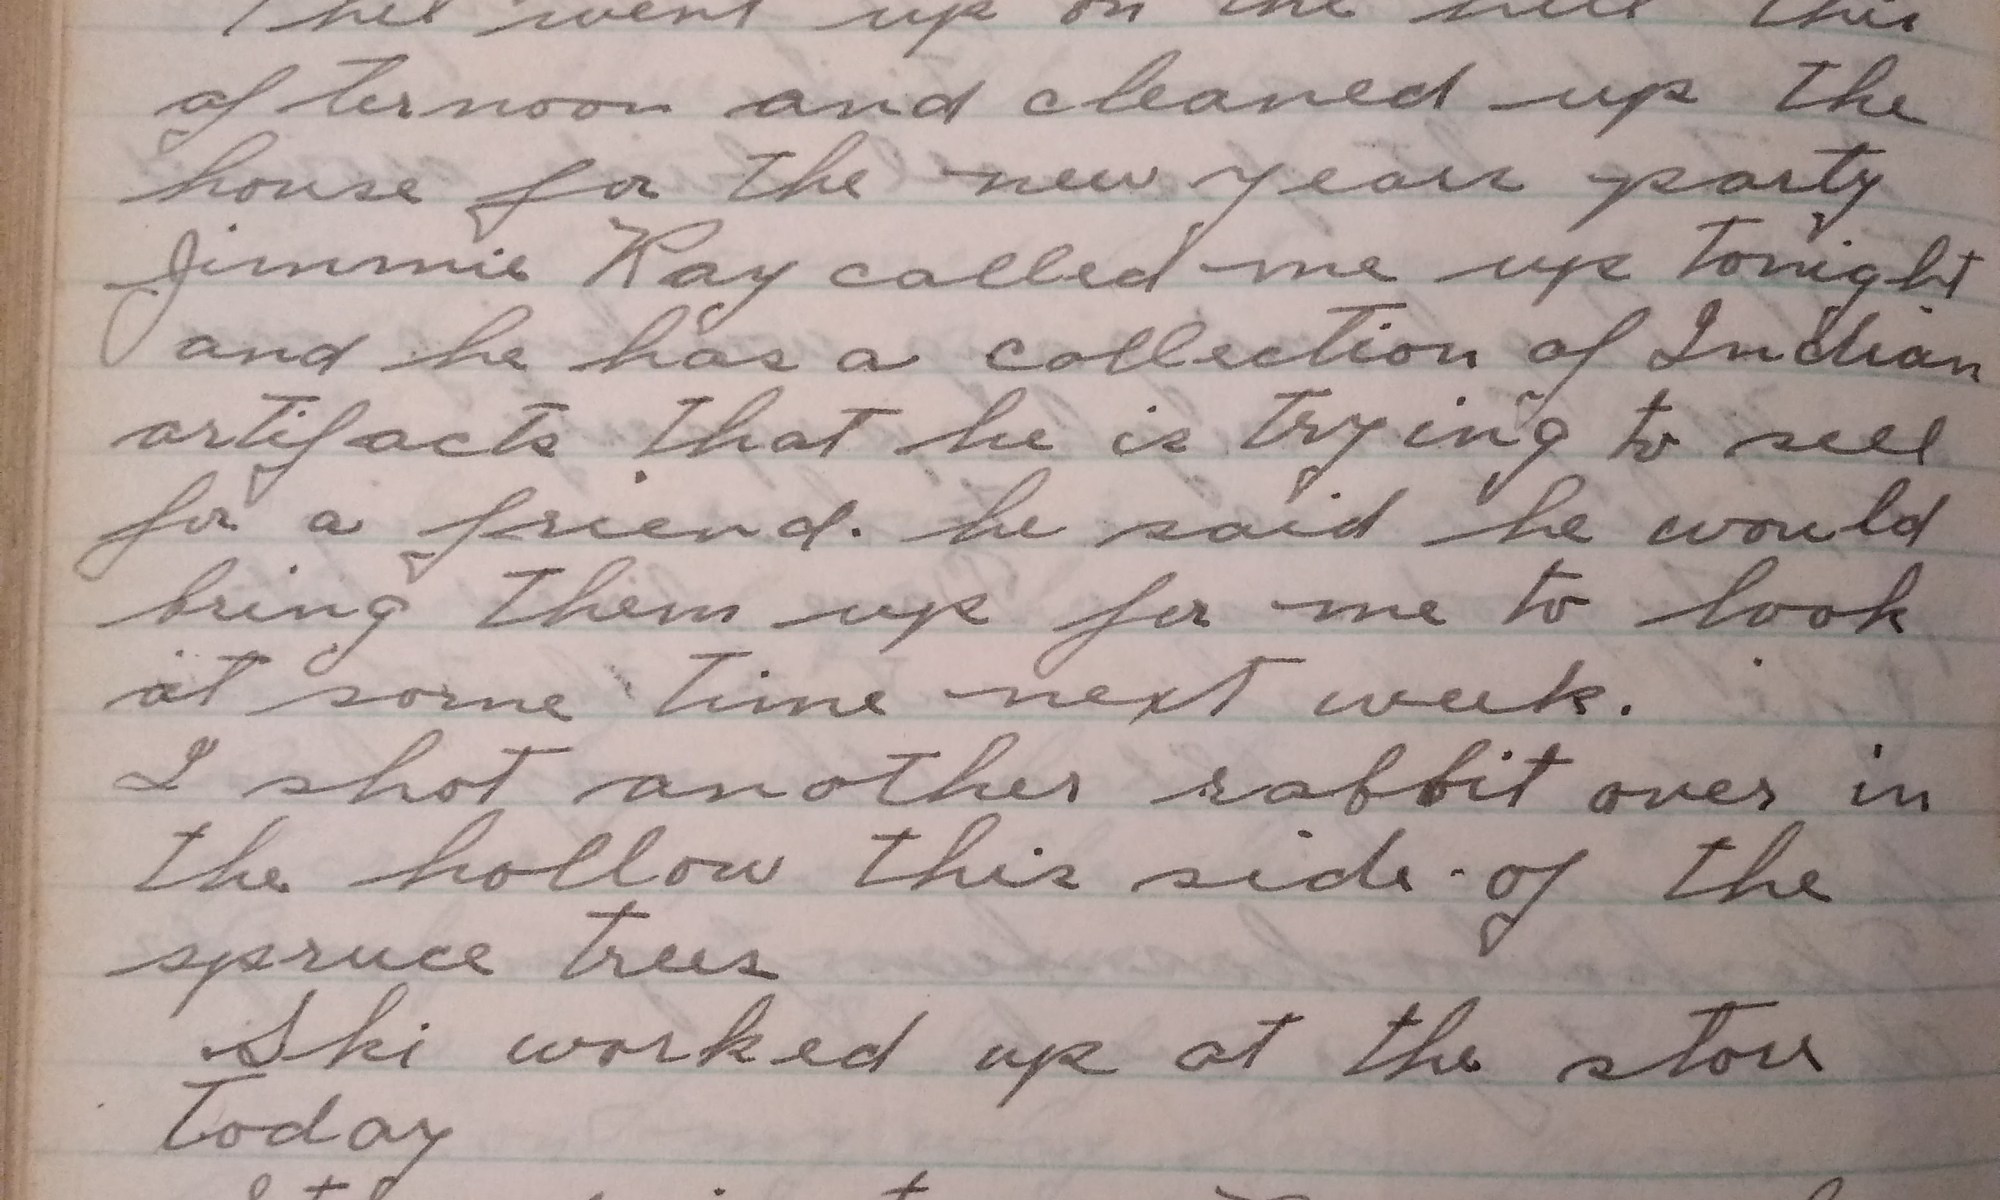 went up on the hill this
afternoon and cleaned up the
house for the new years party
Jimmie Ray called me up tonight
and he has a collection of Indian
artifacts that he is trying to sell
for a friend. he said he would
bring them up for me to look
at some time next week.
I shot another rabbit over in
the hollow this side of the
spruce trees
Ski worked up at the store
Today